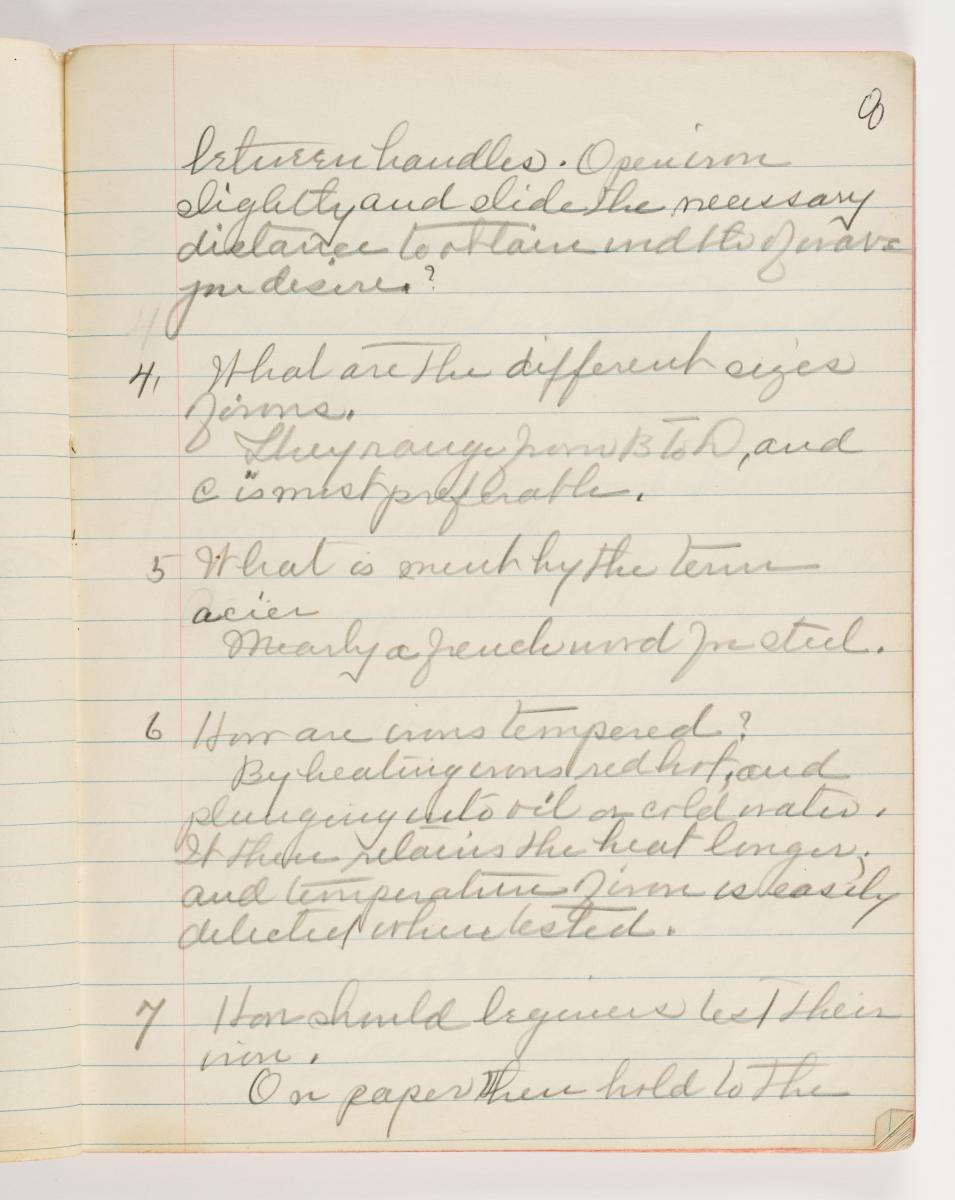 8
between handles. Open iron
slightly and slide the necessary
distance to obtain width of wave
you desire.?
4, What are the different sizes
of irons.
They range from B to D, and
C is most preferable.
5 What is ment by the term
acier
Mearly a french word for steel.
6 How are irons tempered?
By heating irons red hot, and
plunging into oil or cold water.
It then retains the heat longer,
and temperature of iron is easily
detected when tested.
7 How should beginers test their
iron.
On paper then hold to the